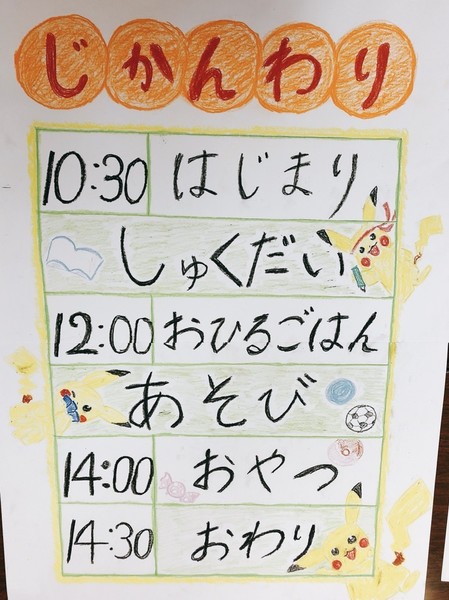 じかんわり
10:30 はじまり
しゅくだい
12:00 おひるごはん
あそび
14:00 おやつ
14:30 おわり